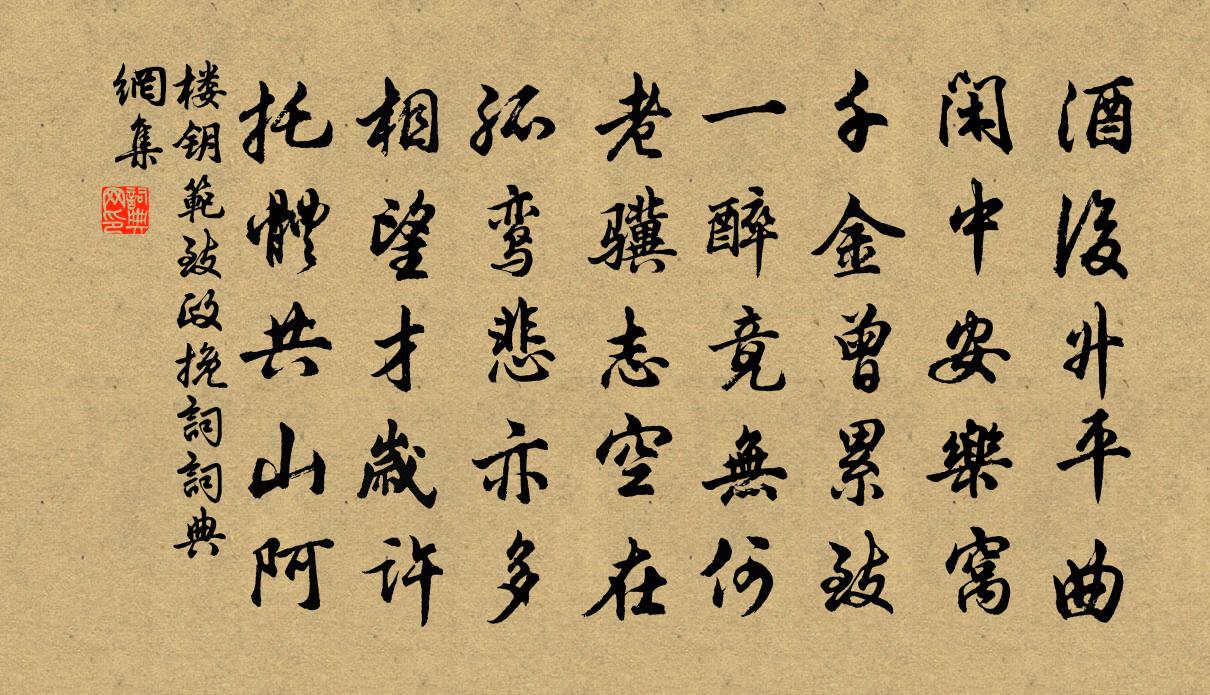 酒後升平曲
閑中安樂窩
千金曾累致
一醉竟無何
老骥志空在
孤鸾悲亦多
相望才歲許
托體共山阿
楼钥範致政挽詞詞典
網集
詞典网印